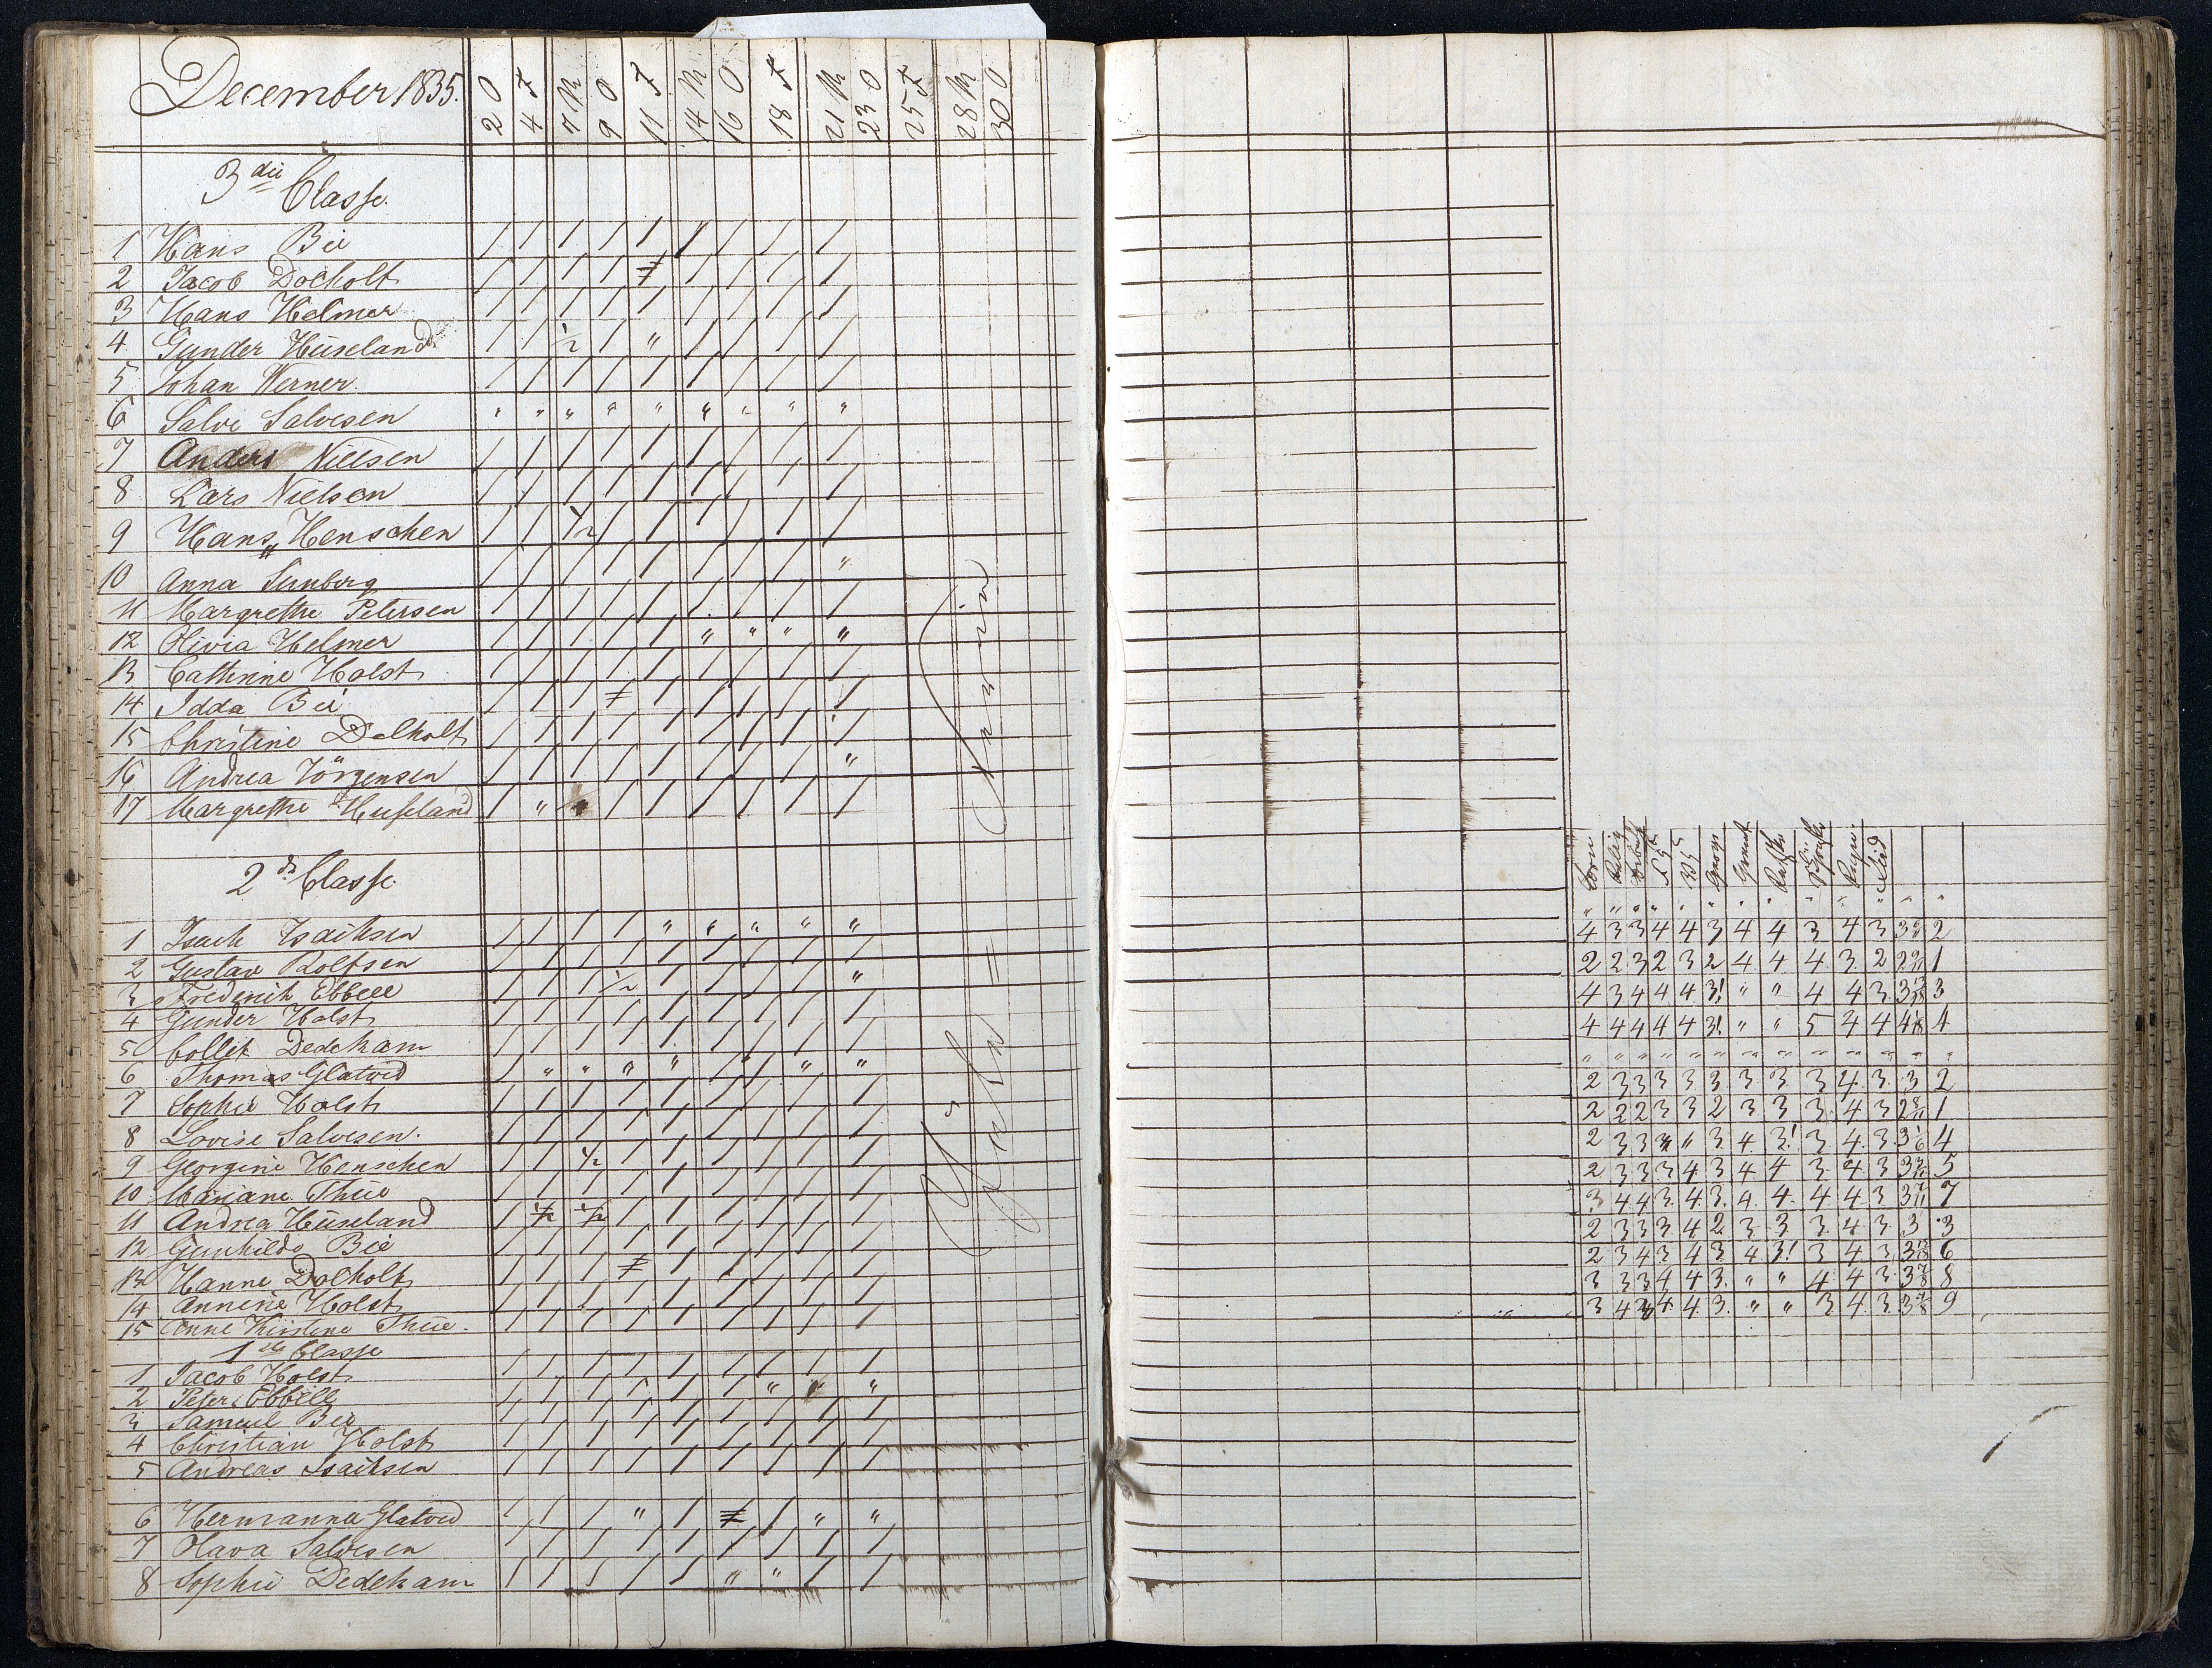 December 1835.
2 O 4 F 7 M 9 O 11 F 14 M 16 O 18 F 21 M 23 O 25 F 28 M 30 O
3die Classe.
1 Hans Bie / / / / / / / / /
2 Jacob Docholt / / / / ≠ / / / /
3 Hans Helmer / / / / / / / / /
4 Gunder Huseland / / 1/2 / " / / / /
5 Johan Werner. / / / / / / / / /
6 Salve Salvesen " " " " " " " " "
7 Anders Nielsen / / / / / / / / /
8 Lars Nielsen / / / / / / / / /
9 Hans Henschen / / 1/2 / / / / / /
10 Anna Sunberg / / / / / / / / "
11 Margrethe Petersen / / / / / / / / /
12 Olivia Helmer / / / / / " " " "
13 Cathrine Holst / / / / / / / / /
14 Idda Bie / / / ≠ / / / / /
15 Christine Dolholt / / / / / / / / /
16 Andrea Jörgensen / / / / / / / / "
17 Margrethe Huseland / " / / / / / /
2de Classe
1 Isach Isachsen / / / / " " " " "
2 Gustav Rolfsen / / / / / / / / /
3 Frederich Ebbell / / / 1/2 / / / / "
4 Gunder Holst / / / / / / / / /
5 Collet Dedekam / / / / / / / / /
6 Thomas Glatved / " " " " / / " "
7 Sophie Holst / / / / / / / / /
8 Lovise Salvesen. / / / / / / / / /
9 Georgine Henschen / / 1/2 / / / / / /
10 Mariane Thue / / / / / / / / /
11 Andrea Huseland / 1/2 1/2 / / / / / /
12 Gunhilde Bie / / / / / / / / /
13 Hanne Dolholt / / / ≠ / / / / /
14 Annine Holst / / / / / / / / /
15 Anne Kirstine Thue. / / / / / / / / /
1ste Classe
1 Jacob Holst / / / / / / / / /
2 Peter Ebbell / / / / / / " " "
3 Samuel Bie / / / / / / / / /
4 Christian Holst / / / / / / / / /
5 Andreas Isachsen / / / / / / / / /
6 Hermanna Glatved / / / " / ≠ / " "
7 Olava Salvesen / / / / / / / / /
8 Sophie Dedekam / / / / / " " / /
Jule = Ferien
Relig
Geogr
Regn.
Flid
" " " " " " " " " " " " "
4 3 3 4 4 3 4 4 3 4 3 2
2 2 3 2 3 2 4 4 4 3 2 1
4 3 4 4 4 3! " " 4 4 3 3
4 4 4 4 4 3! " " 5 4 4 4
" " " " " " " " " " " " "
2 3 3 3 3 3 3 3 3 4 3 3 2
2 2 2 3 3 2 3 3 3 4 3 1
2 3 3 " " 3 4 3! 3 4 3 4
2 3 3 3 4 3 4 4 3 4 3 5
3 4 4 3 4 3 4 4 4 4 3 7
2 3 3 3 4 2 3 3 3 4 3 3 3
2 3 4 3 4 3 4 3! 3 4 3 6
3 3 3 4 4 3 " " 4 4 3 8
3 4 4 4 3 " " 3 4 3 9